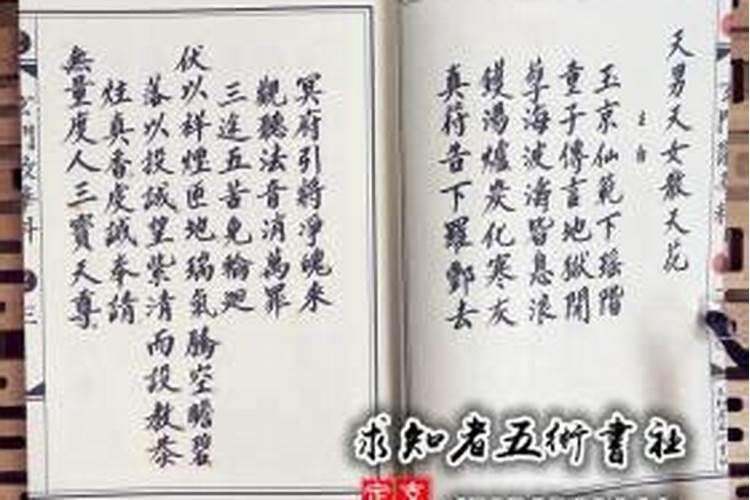 天男天女散天花
主白
玉京仙範下瑶階
童子傳言地獄開
孽海波濤皆息浪
鑊湯爐炭化寒灰
真符告下羅酆去
冥府引將凈魄來
觀聽法音消萬罪
三途五苦免輪迴
伏以祥煙匝地瑞氣騰空瞻碧
落以投誠望紫清而設教恭
炷真香虔誠奉請
無量度人三寶天尊
求知者五術書社